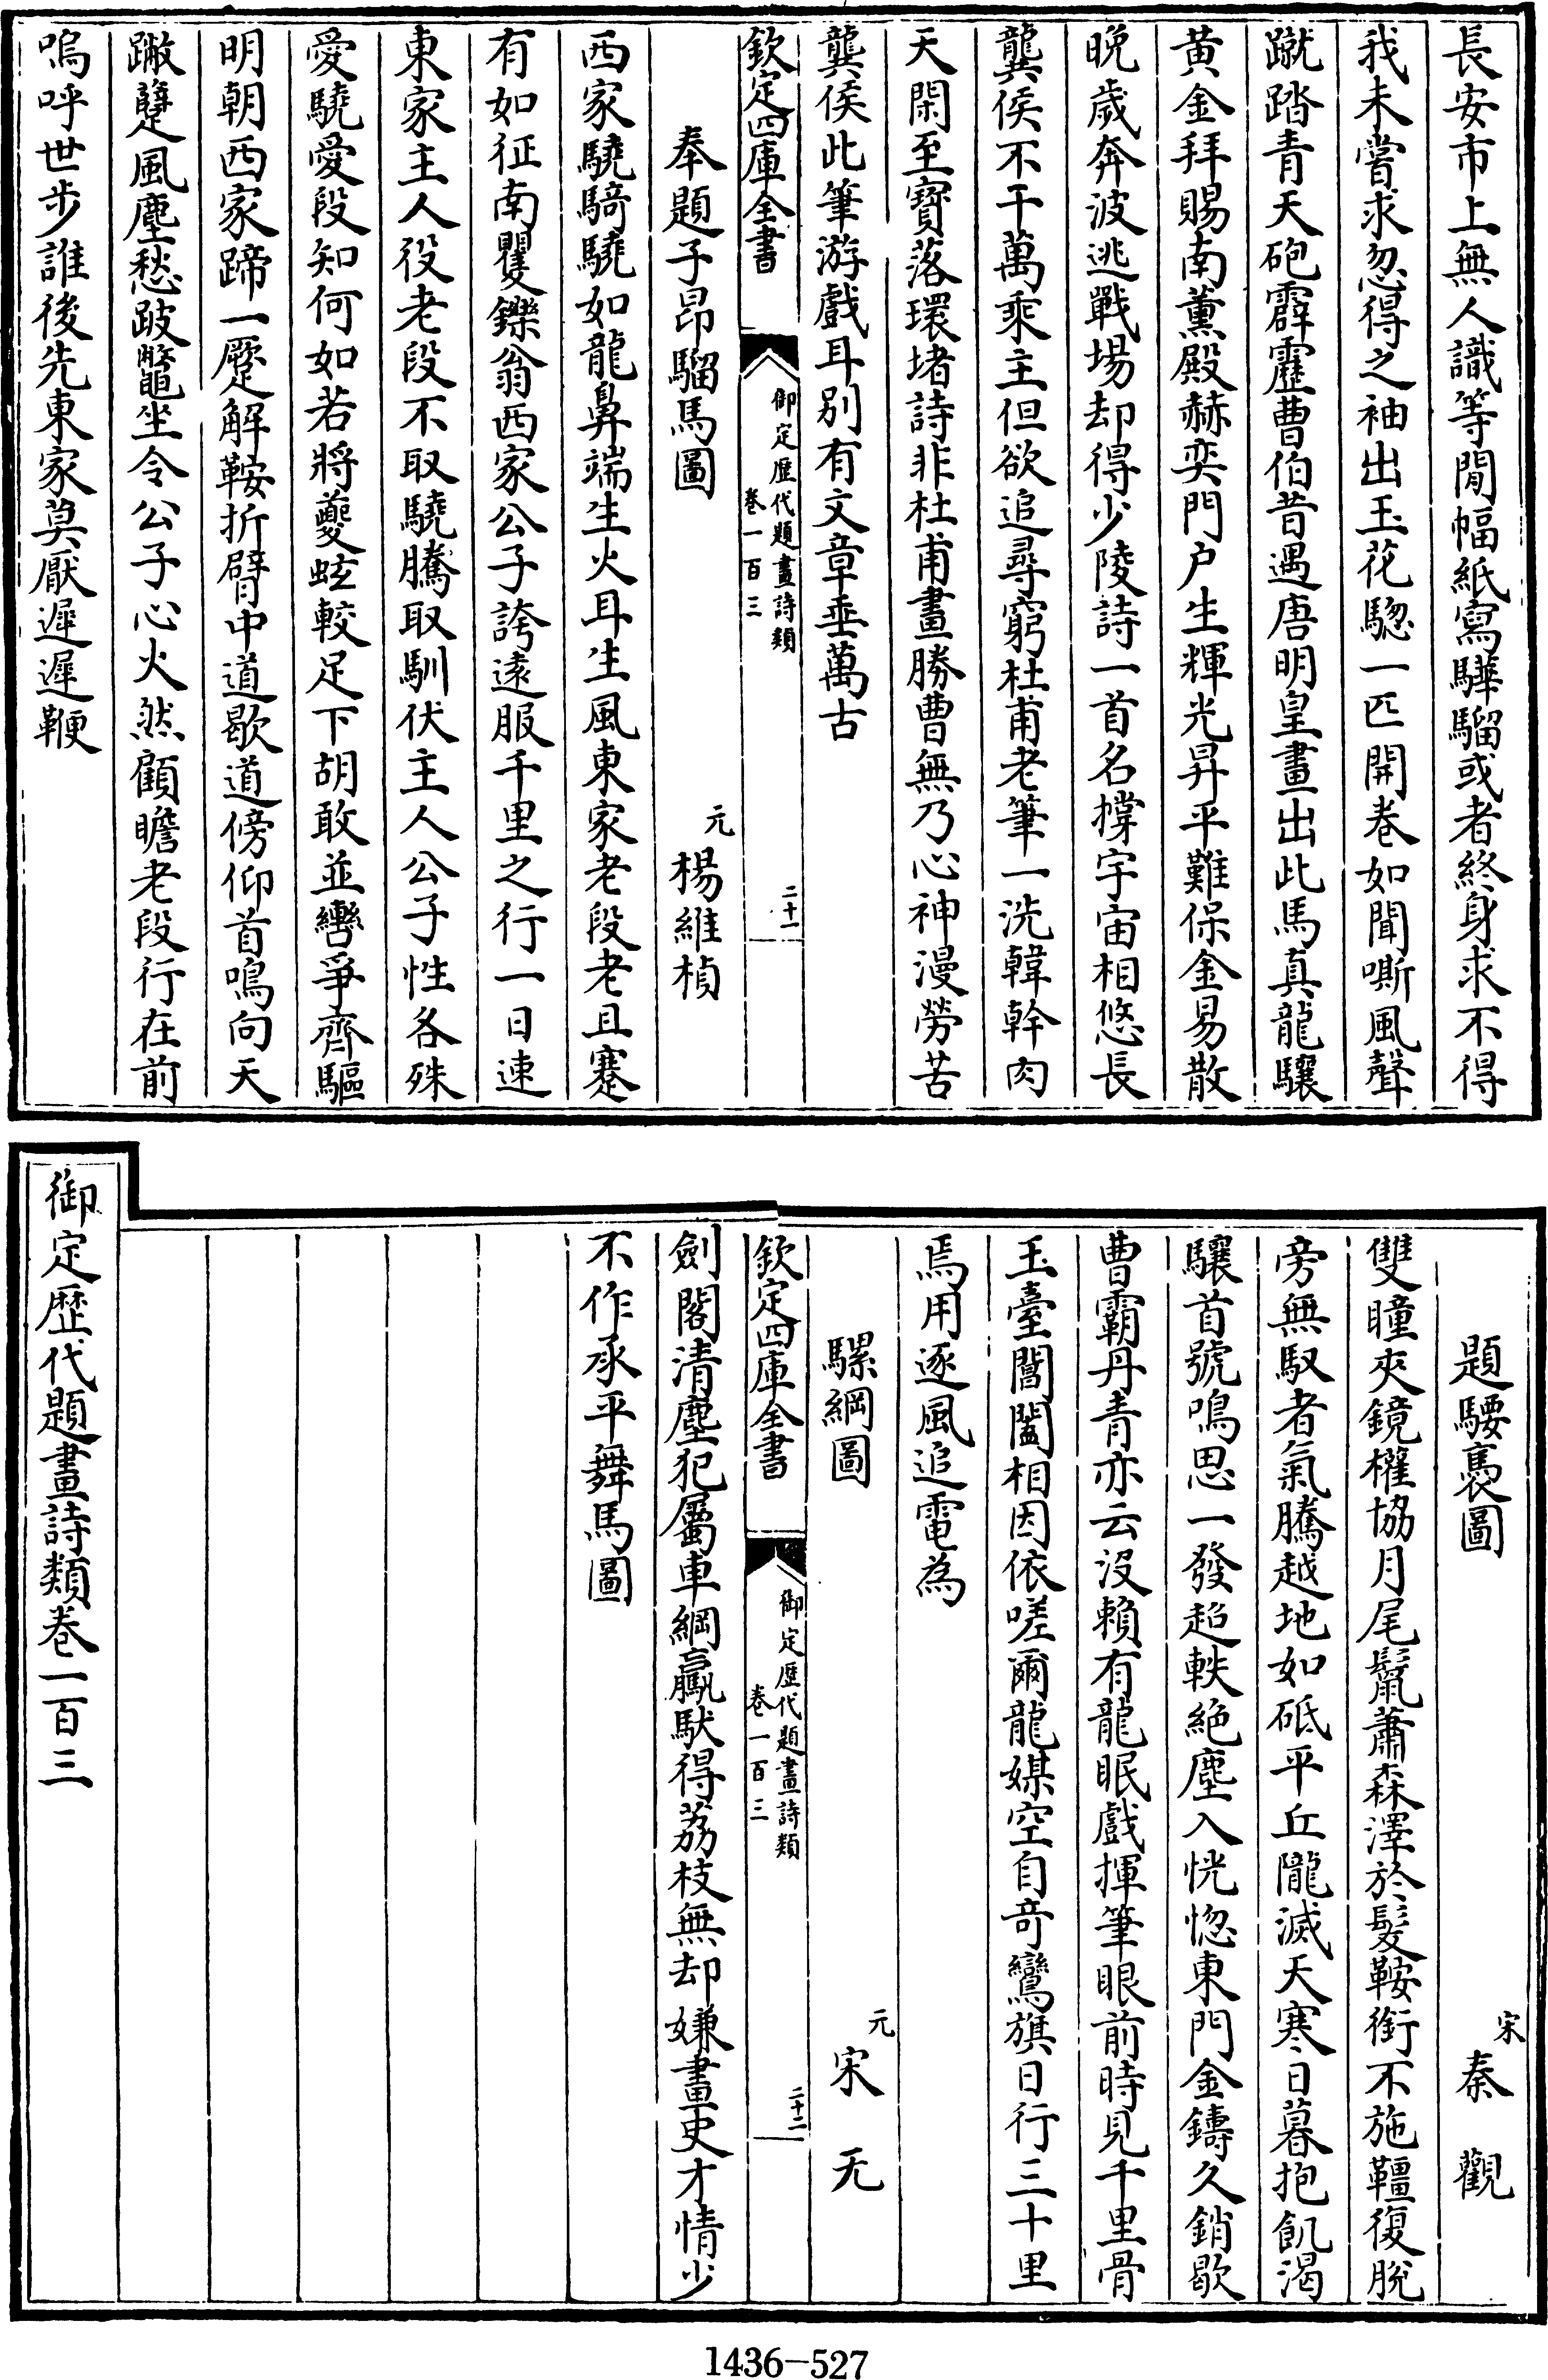 長安市上無人識等閒幅紙寫驊騮或者終身求不得
我未嘗求忽得之袖出玉花驄一匹開卷如聞嘶風聲
蹴踏青天砲霹靂曹伯昔遇唐明皇畫出此馬真龍驤
黃金拜賜南薰殿赫奕門户生輝光昇平難保金易散
晚歲奔波逃戰場却得少陵詩一首名撑宇宙相悠長
龔侯不干萬乘主但欲追尋窮杜甫老筆一洗韓幹肉
天閑至寶落環堵詩非杜甫畫勝曹無乃心神漫勞苦
龔侯此筆游戲耳别有文章垂萬古
欽定四庫全書
御定歴代題畫詩類
卷一百三
二十一
奉題子昂騮馬圖
元 楊維楨
西家驍騎驍如龍鼻端生火耳生風東家老段老且蹇
有如征南矍鑠翁西家公子誇遠服千里之行一日速
東家主人役老段不取驍騰取馴伏主人公子性各殊
愛驍愛段知何如若將夔蚿較足下胡敢並轡爭齊驅
明朝西家蹄一蹙解鞍折臂中道歇道傍仰首鳴向天
蹴躠風塵愁跛鼈坐令公子心火然顧瞻老段行在前
嗚呼世步誰後先東家莫厭遲遲鞭
題騕褭圖
宋 秦觀
雙瞳夾鏡權協月尾鬛蕭森澤於髮鞍銜不施韁復脫
旁無馭者氣騰越地如砥平丘隴滅天寒日暮抱飢渴
驤首號鳴思一發超軼絕塵入恍惚東門金鑄久銷歇
曹霸丹青亦云没賴有龍眠戲揮筆眼前時見千里骨
玉臺閶闔相因依嗟爾龍媒空自竒鸞旗日行三十里
焉用逐風追電為
騾綱圖
元 宋无
欽定四庫全書
御定歴代題畫詩類
卷一百三
二十二
劍閣清塵犯屬車綱驘馱得荔枝無却嫌畫史才情少
不作承平舞馬圖
御定歴代題畫詩類卷一百三
1436-527